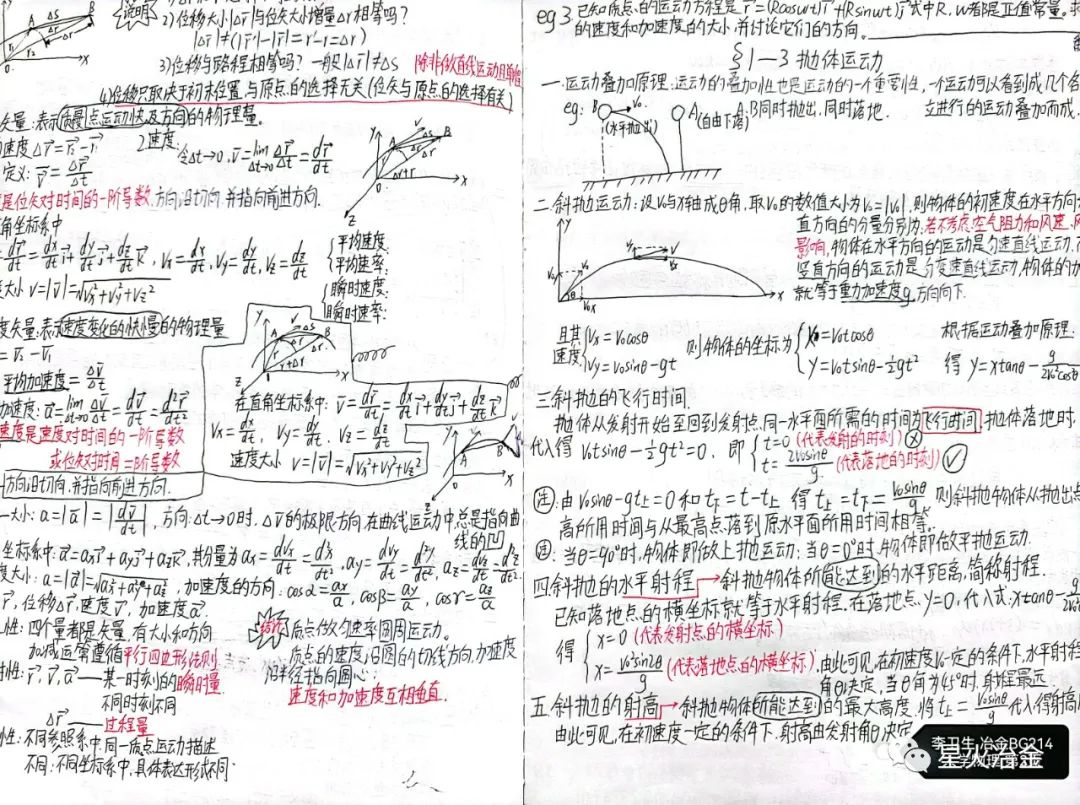 说明
2)位移大小|Δr⃗|与位矢大小增量Δr相等吗?
|Δr⃗|≠(|r⃗'|-|r⃗|=r'-r=Δr)
3)位移与路程相等吗? 一般|Δr⃗|≠ΔS 除非做直线运动且
4)位移只取决于初末位置,与原点的选择无关(位矢与原点的选择有关)
矢量:表示质点运动快慢及方向的物理量。
速度Δr⃗=r⃗₂-r⃗₁
定义: v̅=Δr⃗/Δt
2.速度:
令Δt→0, v⃗=lim Δt→0 Δr⃗/Δt=dr⃗/dt
是位矢对时间的一阶导数,方向:沿切向,并指向前进方向.
角坐标系中
=dr⃗/dt=dx/dt i⃗+dy/dt j⃗+dz/dt k⃗, vx=dx/dt, vy=dy/dt, vz=dz/dt
大小 v=|v⃗|=√vx²+vy²+vz²
平均速度:
平均速率:
瞬时速度:
瞬时速率:
度矢量:表示速度变化的快慢的物理量
=v⃗₂-v⃗₁
平均加速度=Δv⃗/Δt
加速度: a⃗=lim Δt→0 Δv⃗/Δt=dv⃗/dt=d²r⃗/dt²
速度是速度对时间的一阶导数
或位矢对时间二阶导数
方向:沿切向,并指向前进方向.
在直角坐标系中: v⃗=dr⃗/dt=dx/dt i⃗+dy/dt j⃗+dz/dt k⃗
vx=dx/dt, vy=dy/dt, vz=dz/dt
速度大小 v=|v⃗|=√vx²+vy²+vz²
大小: a=|a⃗|=|dv⃗/dt|, 方向:Δt→0时,Δv⃗的极限方向,在曲线运动中,总是指向曲
线的凹
坐标系中: a⃗=axi⃗+ayj⃗+azk⃗, 其分量为ax=dvx/dt=d²x/dt², ay=dvy/dt=d²y/dt², az=dvz/dt=d²z/dt²
度大小: a=|a⃗|=√ax²+ay²+az², 加速度的方向: cosα=ax/a, cosβ=ay/a, cosγ=az/a
r⃗,位移Δr⃗,速度v⃗,加速度a⃗.
性: 四个量都是矢量,有大小和方向
加减运算遵循平行四边形法则
性: r⃗, v⃗, a⃗—某一时刻的瞬时量
不同时刻不同
Δr⃗—过程量
性: 不同参照系中同一质点运动描述
不同;不同坐标系中,具体表达形式不同.
结论 质点做匀速率圆周运动。
质点的速度沿圆的切线方向,加速度
沿半径指向圆心;
速度和加速度互相垂直.
eg3.已知质点的运动方程是r⃗=(Rcosωt)i⃗+(Rsinωt)j⃗式中R,ω都是正值常量。求
的速度和加速度的大小,并讨论它们的方向。
§1-3 抛体运动
一.运动叠加原理:运动的叠加性也是运动的一个重要性,一个运动可以看到成几个各
立进行的运动叠加而成.
eg: B (水平抛出) v₀ A (自由下落) A;B同时抛出,同时落地.
二.斜抛运动:设v₀与x轴成θ角,取v₀的数值大小为v₀=|v₀|,则物体的初速度在水平方向
直方向的分量分别为:若不考虑空气阻力和风速,风
影响,物体在水平方向的运动是匀速直线运动,而
竖直方向的运动是匀变速直线运动,物体的加
就等于重力加速度g,方向向下.
且其速度 vx=v₀cosθ
vy=v₀sinθ-gt
则物体的坐标为 x=v₀tcosθ
y=v₀tsinθ-½gt²
根据运动叠加原理:
得 y=xtanθ-g/2v₀²cosθ
三.斜抛的飞行时间.
抛体从发射开始至回到发射点同一水平面所需的时间为飞行时间,抛体落地时,
代入得 v₀tsinθ-½gt²=0, 即 t=0 (代表发射的时刻)
t=2v₀sinθ/g (代表落地的时刻)
注:由v₀sinθ-gt上=0和t下=t-t上 得t上=t下=v₀sinθ/g 则斜抛物体从抛出点
高所用时间与从最高点落到原水平面所用时间相等.
注:当θ=90°时,物体即做上抛运动;当θ=0°时,物体即做平抛运动.
四.斜抛的水平射程→斜抛物体所能达到的水平距离,简称射程.
已知落地点的横坐标就等于水平射程.在落地点y=0,代入式:xtanθ-g
得 x=0 (代表发射点的横坐标)
x=v₀²sin2θ/g (代表落地点的横坐标)
由此可见,在初速度v₀一定的条件下,水平射程
角θ决定,当θ角为45°时,射程最远.
五.斜抛的射高→斜抛物体所能达到的最大高度.将t上=v₀sinθ/g代入得射高
由此可见,在初速度一定的条件下,射高由发射角θ决定
李卫生 冶金BG214
星火冶金